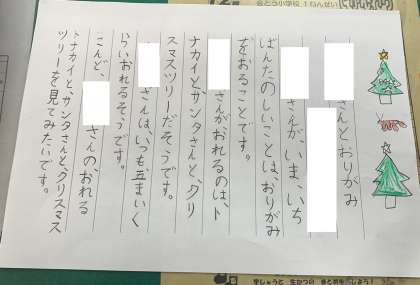 さんとおりがみ
さんが、いま、いち
ばんたのしいことは、おりがみ
をおることです。
さんがおれるのは、ト
ナカイと、サンタさんと、クリ
スマスツリーだそうです。
さんは、いつも五まいく
らいおれるそうです。
こんど、
さんの、おれる
トナカイと、サンタさんと、クリスマス
ツリーを見てみたいです。